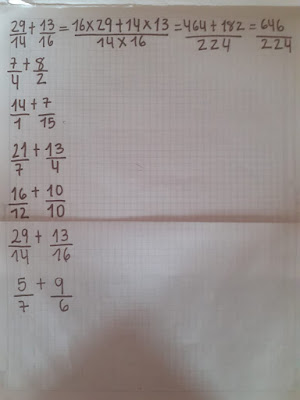 29/14 + 13/16 = 16×29+14×13/14×16 = 464+182/224 = 646/224
7/4 + 8/2
14/1 + 7/15
21/7 + 13/4
16/12 + 10/10
29/14 + 13/16
5/7 + 9/6